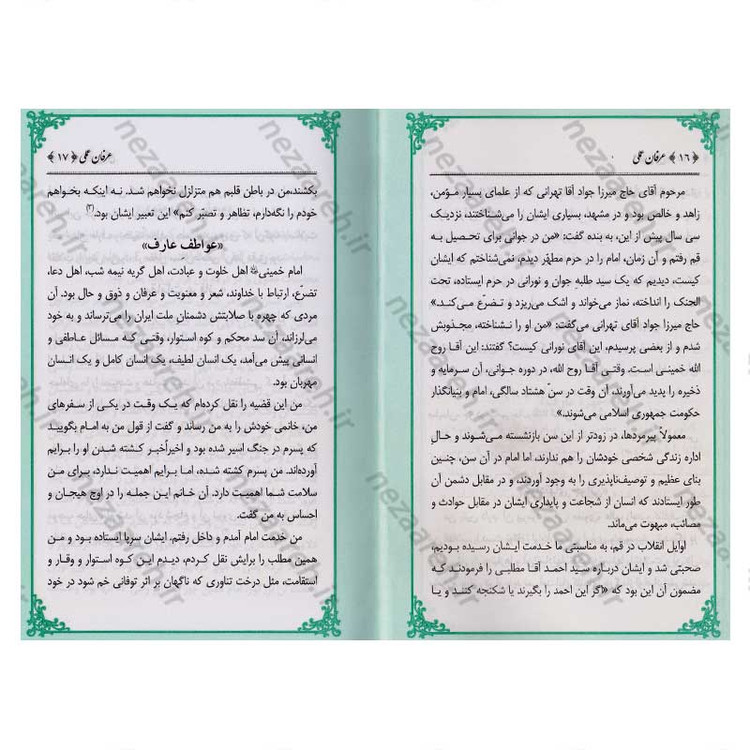 ﴿ ۱۶ ﴾ عرفان عملی
مرحوم آقای حاج میرزا جواد آقا تهرانی که از علمای بسیار مؤمن،
زاهد و خالص بود و در مشهد، بسیاری ایشان را می‌شناختند، نزدیک
سی سال پیش از این، به بنده گفت: «من در جوانی برای تحصیل به
قم رفتم و آن زمان، امام را در حرم مطهّر دیدم، نمی‌شناختم که ایشان
کیست، دیدیم که یک سید طلبه جوان و نورانی در حرم ایستاده، تحت
الحنک را انداخته، نماز می‌خواند و اشک می‌ریزد و تضرّع می‌کند.»
حاج میرزا جواد آقای تهرانی می‌گفت: «من او را نشناخته، مجذوبش
شدم و از بعضی پرسیدم، این آقای نورانی کیست؟ گفتند: این آقا روح
الله خمینی است. وقتی آقا روح الله، در دوره جوانی، آن سرمایه و
ذخیره را پدید می‌آورند، آن وقت در سنّ هشتاد سالگی، امام و بنیانگذار
حکومت جمهوری اسلامی می‌شوند.»
معمولاً پیرمردها، در زودتر از این سن بازنشسته می‌شوند و حال
اداره زندگی شخصی خودشان را هم ندارند، اما امام در آن سن، چنین
بنای عظیم و توصیف‌ناپذیری را به وجود آوردند، و در مقابل دشمن آن
طور ایستادند که انسان از شجاعت و پایداری ایشان در مقابل حوادث و
مصائب، مبهوت می‌ماند.
اوایل انقلاب در قم، به مناسبتی ما خدمت ایشان رسیده بودیم،
صحبتی شد و ایشان درباره سید احمد آقا مطلبی را فرمودند که
مضمون آن این بود که «اگر این احمد را بگیرند یا شکنجه کنند و یا
عرفان عملی ﴿ ۱۷ ﴾
بکشند،من در باطن قلبم هم متزلزل نخواهم شد. نه اینکه بخواهم
خودم را نگه‌دارم، تظاهر و تصبّر کنم» این تعبیر ایشان بود.(۳)
«عواطف عارف»
امام خمینی اهل خلوت و عبادت، اهل گریه نیمه شب، اهل دعا،
تضرّع، ارتباط با خداوند، شعر و معنویت و عرفان و ذوق و حال بود. آن
مردی که چهره با صلابتش دشمنان ملت ایران را می‌ترساند و به خود
می‌لرزاند، آن سد محکم و کوه استوار، وقتی که مسائل عاطفی و
انسانی پیش می‌آمد، یک انسان لطیف، یک انسان کامل و یک انسان
مهربان بود.
من این قضیه را نقل کرده‌ام که یک وقت در یکی از سفرهای
من، خانمی خودش را به من رساند و گفت از قول من به امام بگویید
که پسرم در جنگ اسیر شده بود و اخیراًخبر کشته شدن او را برایم
آورده‌اند. من پسرم کشته شده، اما برایم اهمیت ندارد، برای من
سلامت شما اهمیت دارد. آن خانم این جمله را در اوج هیجان و
احساس به من گفت.
من خدمت امام آمدم و داخل رفتم. ایشان سرپا ایستاده بود و من
همین مطلب را برایش نقل کردم، دیدم این کوه استوار و وقار و
استقامت، مثل درخت تناوری که ناگهان بر اثر توفانی خم شود در خود
nezaareh.ir